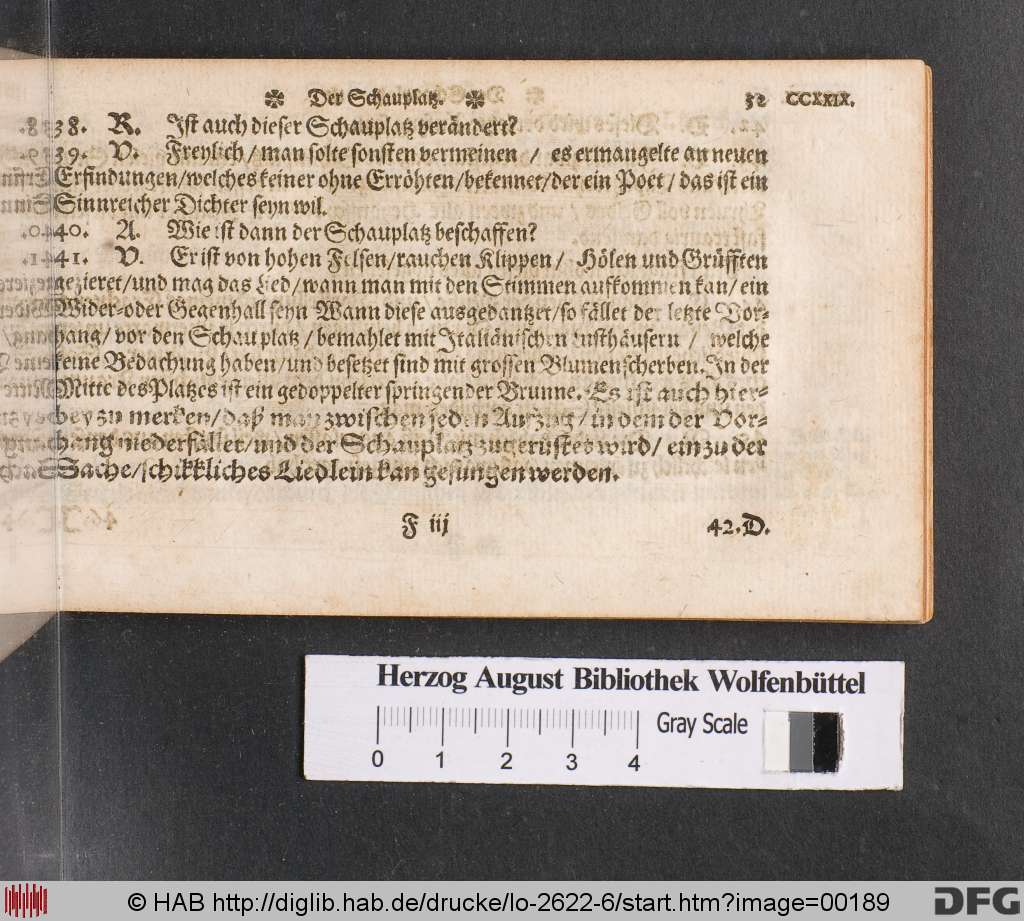 ✽ Der Schauplatz. ✽ 52 CCXXIX.
38. R. Ist auch dieser Schauplatz verändert?
39. V. Freylich / man solte sonsten vermeinen / es ermangelte an neuen
Erfindungen/welches keiner ohne Erröhten/bekennet/der ein Poet / das ist ein
Sinnreicher Dichter seyn wil.
40. A. Wie ist dann der Schauplatz beschaffen?
41. V. Er ist von hohen Felsen/rauchen Klippen / Hölen und Grüfften
gezieret/und mag das Lied/wann man mit den Stimmen aufkommen kan/ ein
Wider-oder Gegenhall seyn Wann diese ausgedantzet/so fället der letzte Vor-
hang/ vor den Schauplatz / bemahlet mit Italiänischen Lusthäusern / welche
keine Bedachung haben/und besetzet sind mit grossen Blumenscherben. In der
Mitte des Platzes ist ein gedoppelter springender Brunne. Es ist auch hier-
bey zu merken/daß man zwischen jeden Aufzug / in dem der Vor-
hang niederfället/und der Schauplatz zugerüstet wird/ ein zu der
Sache/schikkliches Liedlein kan gesungen werden.
F iij 42. D.
Herzog August Bibliothek Wolfenbüttel
Gray Scale
0 1 2 3 4
© HAB http://diglib.hab.de/drucke/lo-2622-6/start.htm?image=00189
DFG